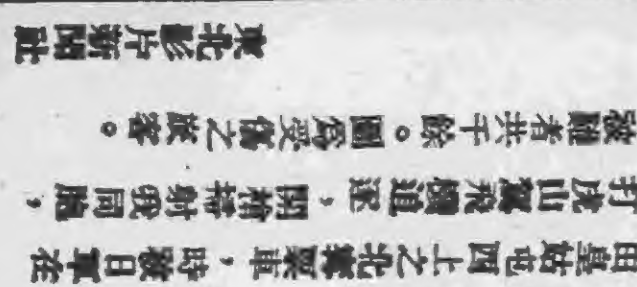 由皇姑屯西上之北寧票車，時被日軍在
打虎山駕飛機追逐，開槍掃射我同胞，
被難者共千餘。圖爲受傷之旅客。
東北影片新聞社